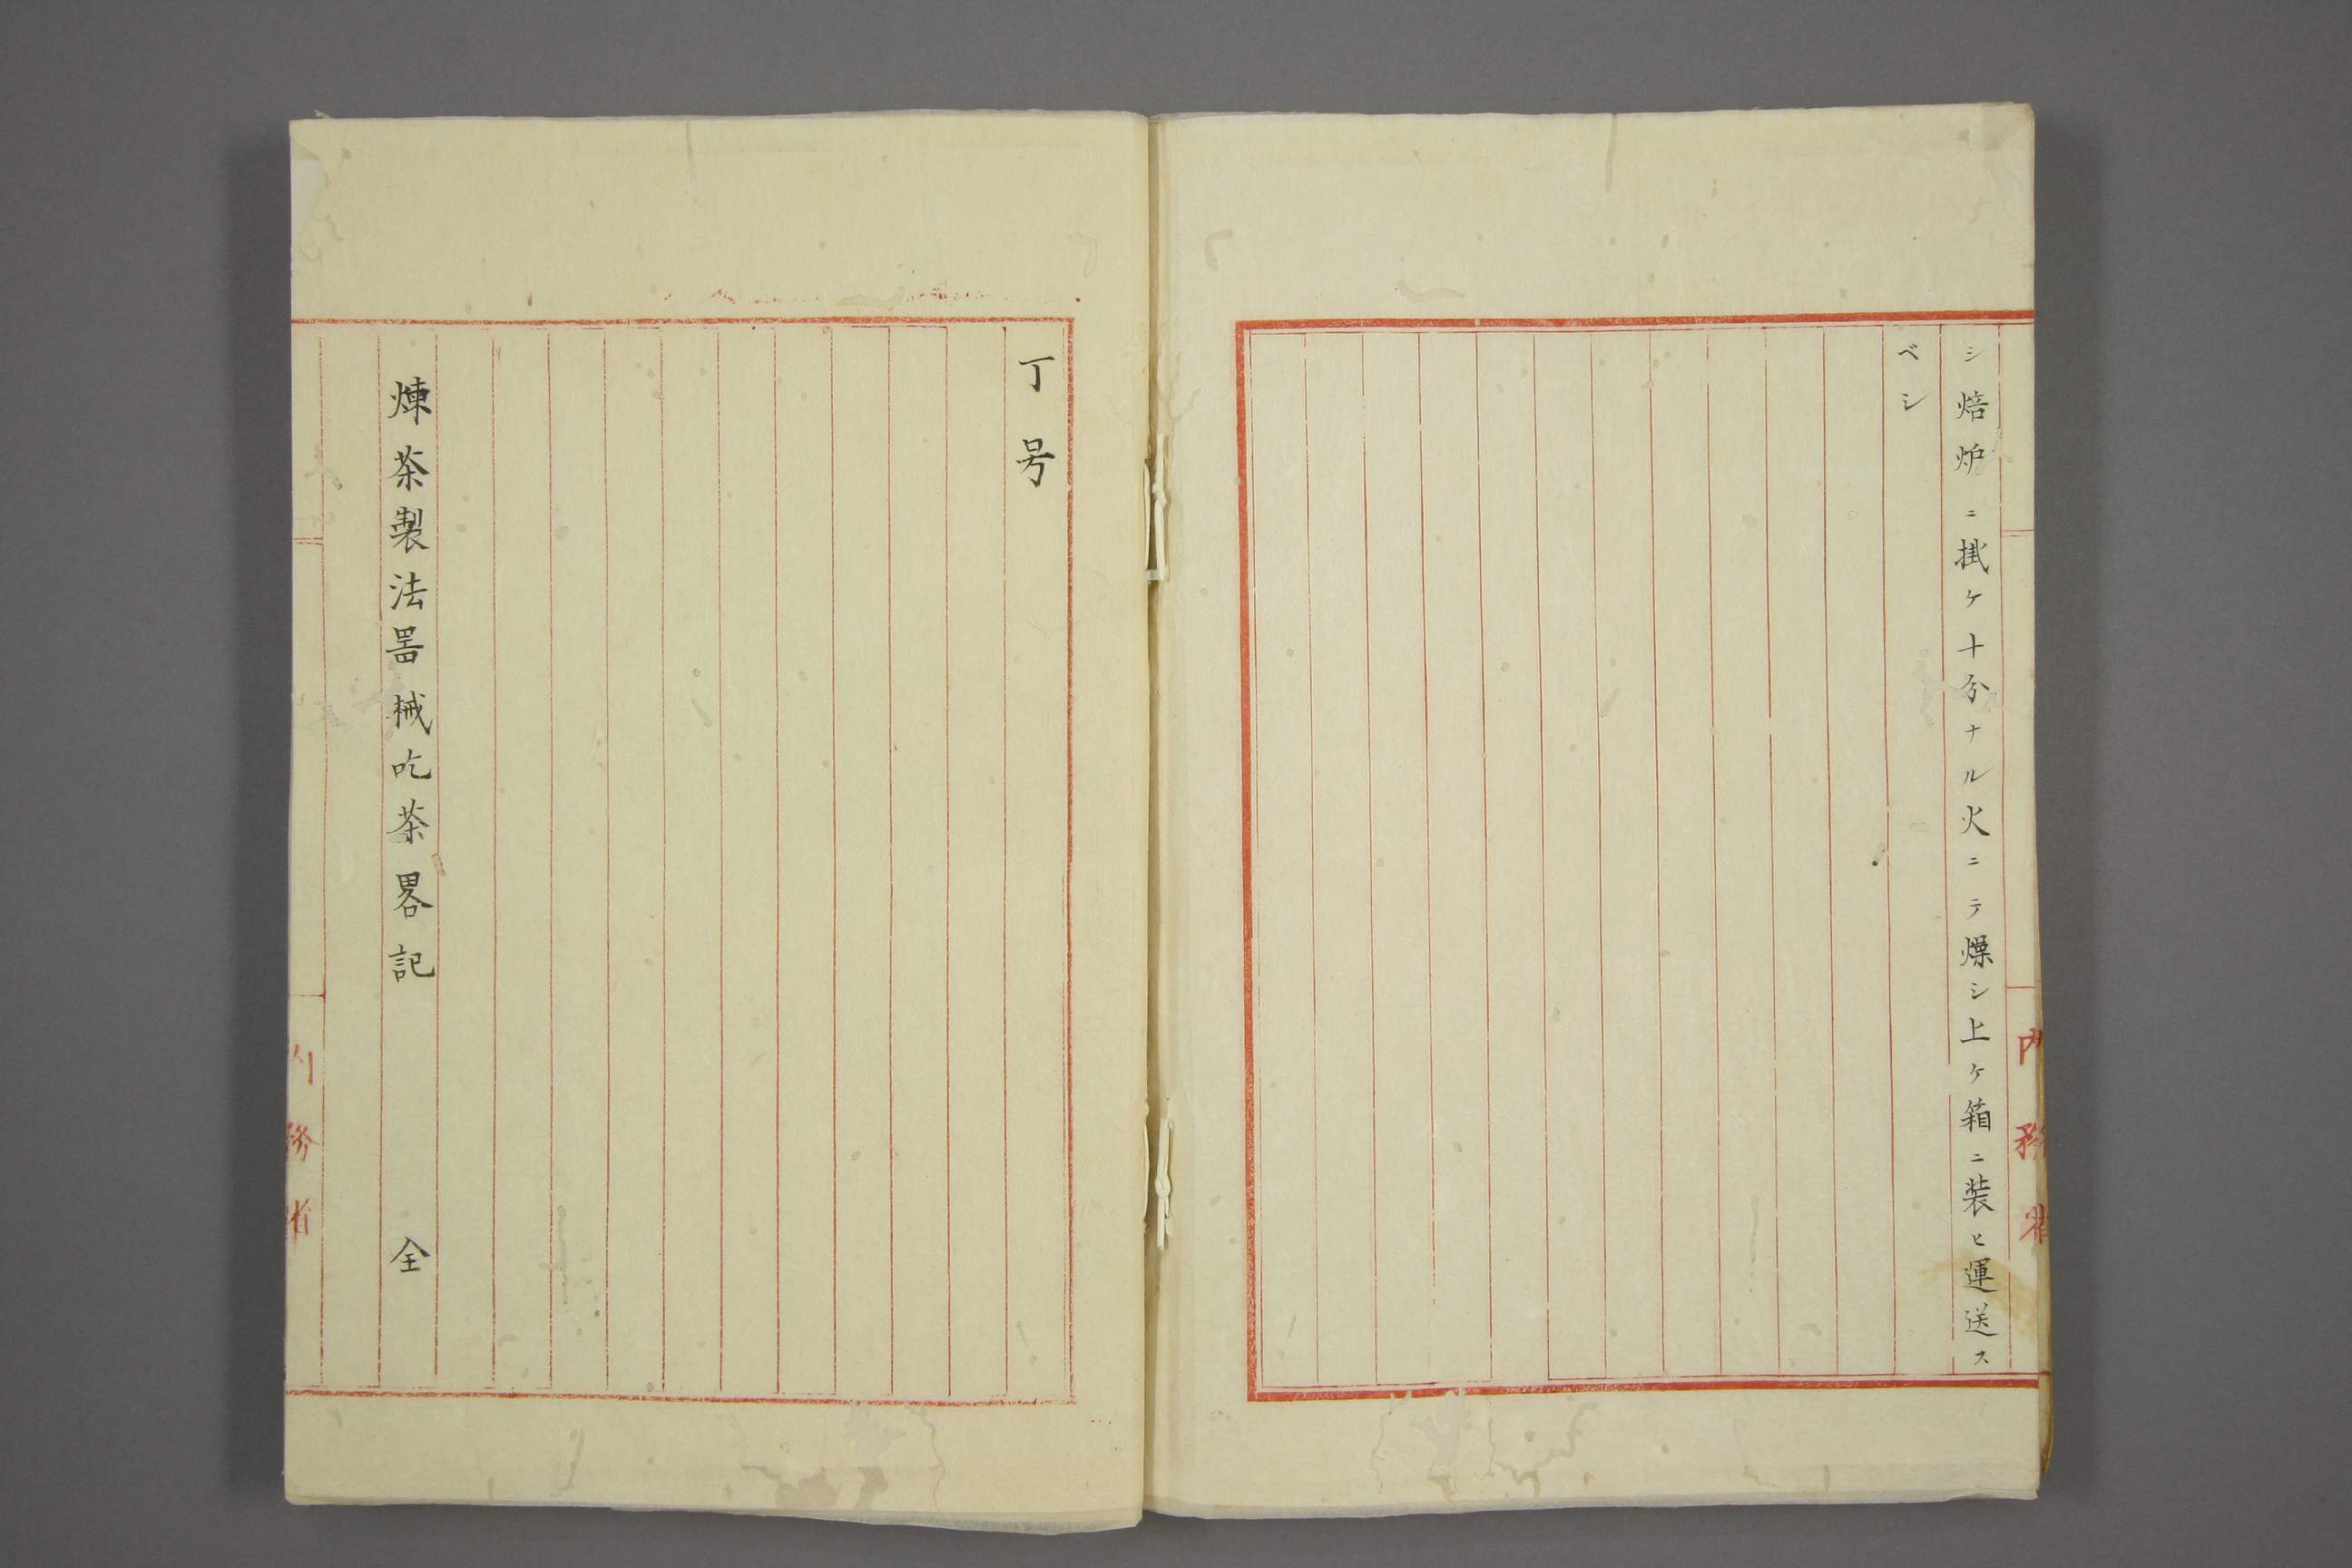 シ焙炉ニ掛ケ十分ナル火ニテ燥シ上ケ箱ニ装ヒ運送ス
ベシ
内務省
丁号
煉茶製法噐械吃茶畧記 全
内務省